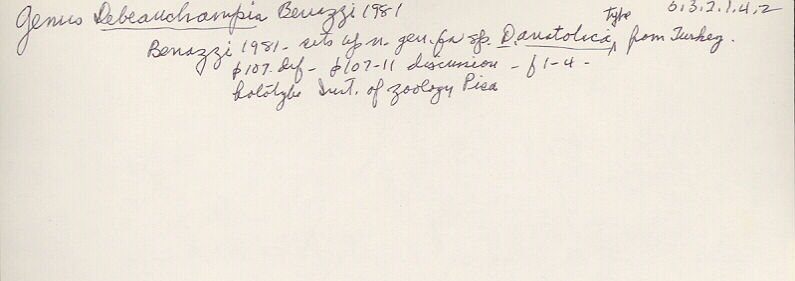 Genus Debeauchampia Benazzi 1981 6.3.2.1.4.2
Benazzi 1981 - sets up n. gen. for sp. D. anatolica, type from Turkey.
p107 def - p107-11 discussion - f 1-4 -
holotype Inst. of zoology Pisa